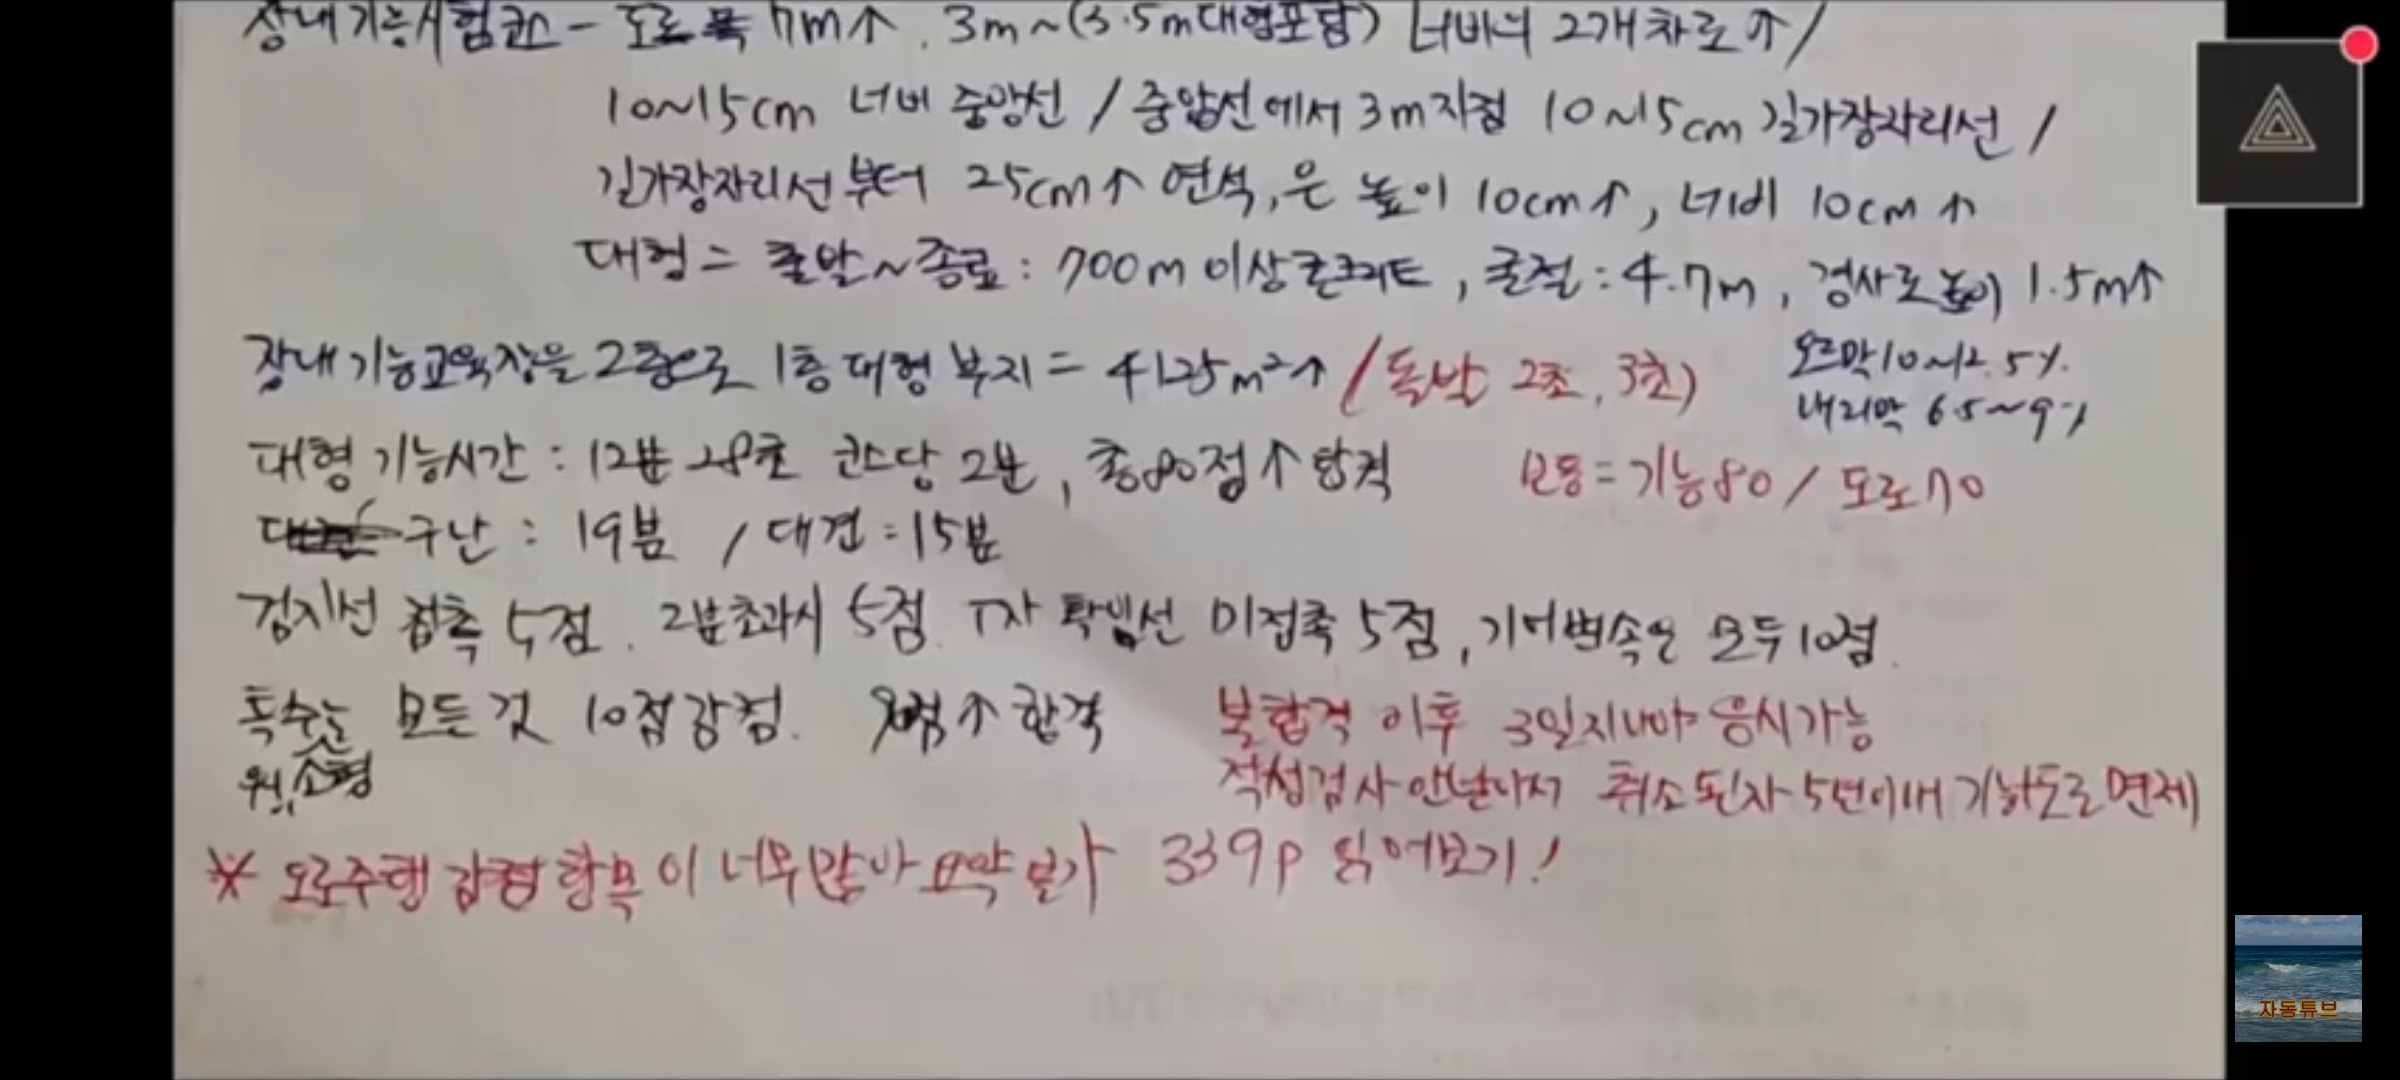 장내기능시험코스 - 도로 폭 7m↑. 3m~(3.5m대형포함) 너비의 2개차로↑/
10~15cm 너비 중앙선 / 중앙선에서 3m지점 10~15cm 길가장자리선 /
길가장자리선부터 25cm↑ 연석,은 높이 10cm↑, 너비 10cm↑
대형= 출발~종료: 700m 이상 콘크리트, 굴절: 4.7m, 경사로높이 1.5m↑
오르막10~12.5%.
내리막 6.5~9%
장내기능교육장을 2층으로 1층 대형 부지 = 4125m²↑ (돌발 2초, 3초)
대형 기능시간 : 12분 28초 코스당 2분, 총80점↑합격
보통=기능80 / 도로70
구난 : 19분 / 대견:15분
검지선 접촉 5점. 2분초과시 5점. T자 확인선 미접촉 5점, 기어변속은 모두10점.
특수는 모든것 10점감점. 90점↑합격
소형
불합격 이후 3일지나야 응시가능
적성검사 안받아서 취소된자 5년이내 기능도로면제
※ 도로주행 감점 항목이 너무많아 요약 불가 339p 읽어보기!
자동튜브